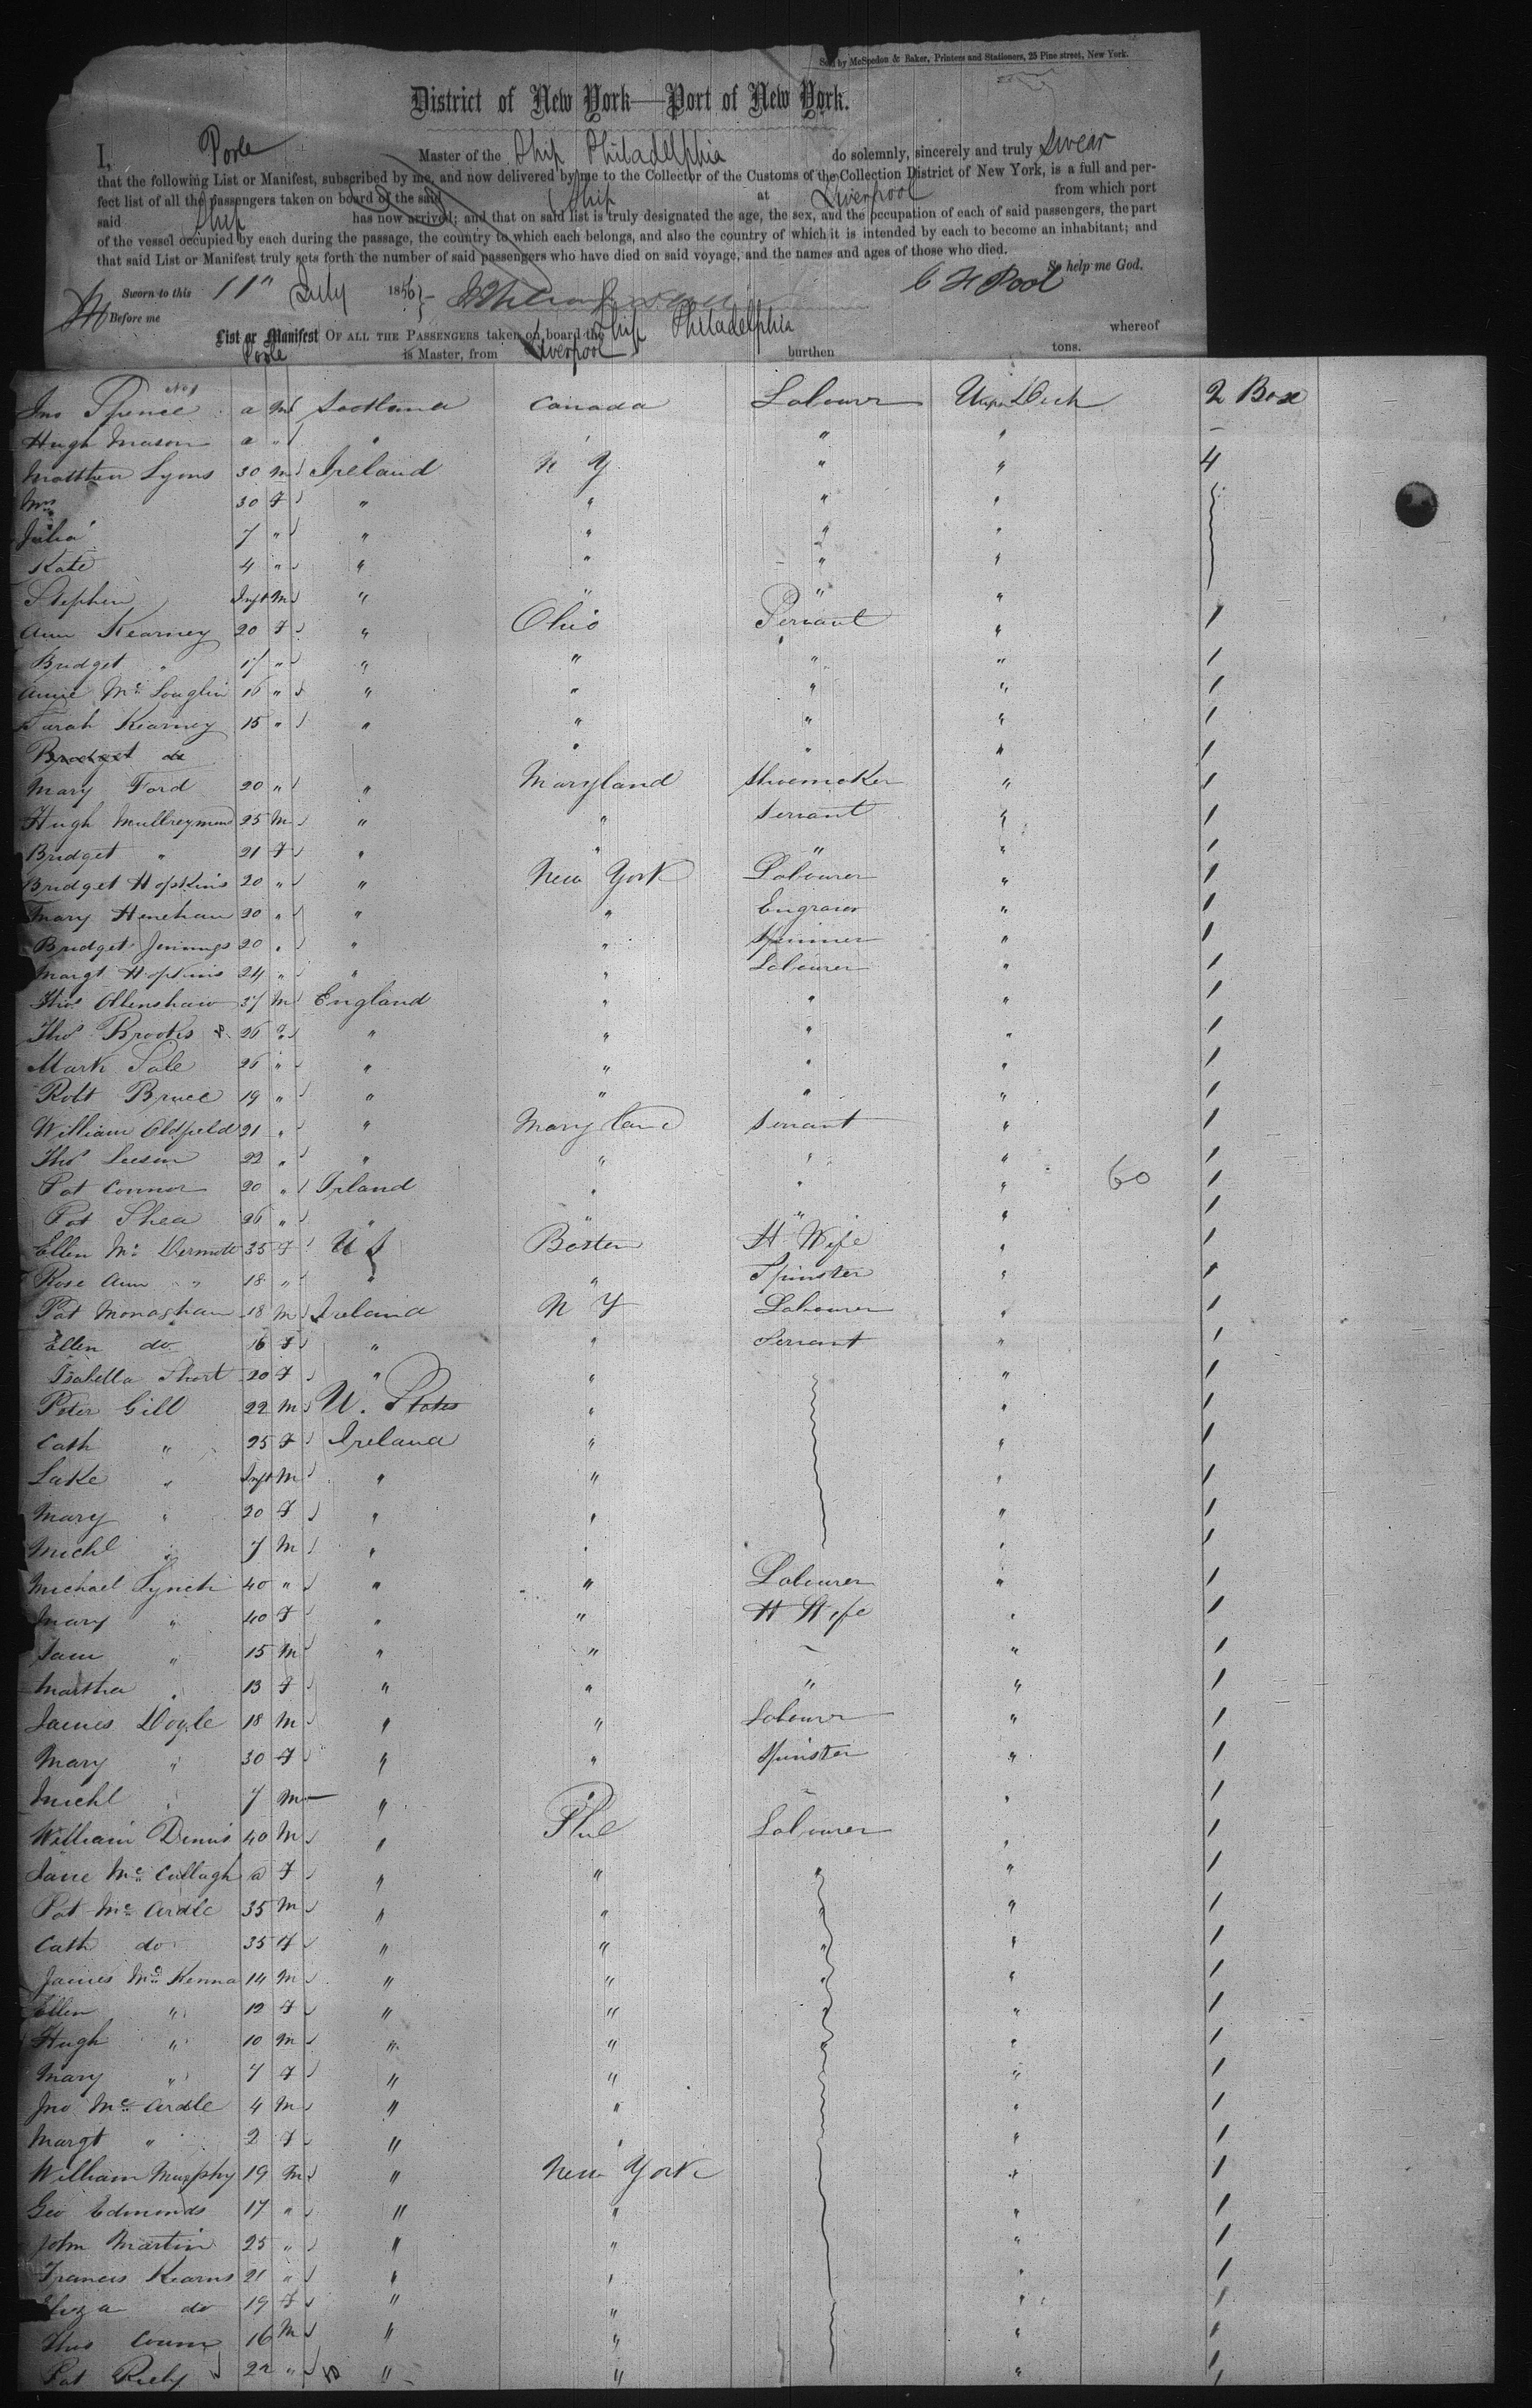 Sold by McSpedon & Baker, Printers and Stationers, 25 Pine street, New York.
District of New York—Port of New York.
I, Poole Master of the Ship Philadelphia do solemnly, sincerely and truly swear
that the following List or Manifest, subscribed by me, and now delivered by me to the Collector of the Customs of the Collection District of New York, is a full and per-
fect list of all the passengers taken on board of the said Ship at Liverpool from which port
said Ship has now arrived; and that on said list is truly designated the age, the sex, and the occupation of each of said passengers, the part
of the vessel occupied by each during the passage, the country to which each belongs, and also the country of which it is intended by each to become an inhabitant; and
that said List or Manifest truly sets forth the number of said passengers who have died on said voyage, and the names and ages of those who died.
So help me God.
Sworn to this 11th July 1856 C H Pool
Before me
List or Manifest OF ALL THE PASSENGERS taken on board the Ship Philadelphia whereof
Poole is Master, from Liverpool burthen tons.
Jno Spence a M Scotland Canada Labourer Upper Deck 2 Box
Hugh Mason a " " " " " -
Matthew Lyons 30 M Ireland N Y " " 4
Mrs 30 F " " " "
Julia 7 " " " " "
Kate 4 " " " " "
Stephen Inft M " " " "
Ann Kearney 20 F " Ohio Servant " 1
Bridget " 17 " " " " " 1
Annie Mc Loughlin 16 " " " " " 1
Sarah Kearney 15 " " " " " 1
Bridget do " " " 1
Mary Ford 20 " " Maryland Shoemaker " 1
Hugh 25 M " " Servant " 1
Bridget " 21 F " " " " 1
Bridget Hopkins 20 " " New York Labourer " 1
Mary Henehan 20 " " " Engraver " 1
Bridget Jennings 20 " " " Spinner " 1
Margt Hopkins 24 " " " Labourer " 1
Thos Ollenshaw 37 M England " " " 1
Thos Brooks 26 " " " " " 1
Mark Sale 26 " " " " " 1
Robt Bruce 19 " " " " " 1
William Oldfield 21 " " Maryland Servant " 1
Thos Leeson 22 " " " " " 1
Pat Connor 20 " Irland " " " 60 1
Pat Shea 26 " " " " " 1
Ellen Mc Dermott 35 F U S Boston H Wife " 1
Rose Ann " 18 " " " Spinster " 1
Pat Monaghan 18 M Ireland N Y Labourer " 1
Ellen do 16 F " " Servant " 1
Isabella Short 20 F " " " 1
Peter Gill 22 M U. States " " 1
Cath " 25 F Ireland " " 1
Luke " Inft M " " " 1
Mary " 20 F " " " 1
Michl " 7 M " " " 1
Michael Lynch 40 " " " Labourer " 1
Mary " 40 F " " H Wife " 1
Sam " 15 M " " - " 1
Martha " 13 F " " " " 1
James Doyle 18 M " " Labourer " 1
Mary " 30 F " " Spinster " 1
Michl " 7 M " " - " 1
William Dennis 40 M " Phil Labourer " 1
Jane Mc Cullagh a F " " " " 1
Pat Mc Ardle 35 M " " " " 1
Cath do 35 F " " " " 1
James Mc Kenna 14 M " " " " 1
Ellen " 12 F " " " " 1
Hugh " 10 M " " " " 1
Mary " 7 F " " " 1
Jno Mc Ardle 4 M " " " 1
Margt " 2 F " " " 1
William Murphy 19 M " New York " 1
Geo Edmonds 17 " " " " 1
John Martin 25 " " " " 1
Francis Kearns 21 " " " " 1
Eliza do 19 F " " " 1
Thos 16 M " " " 1
Pat Riely 22 " " " " 1